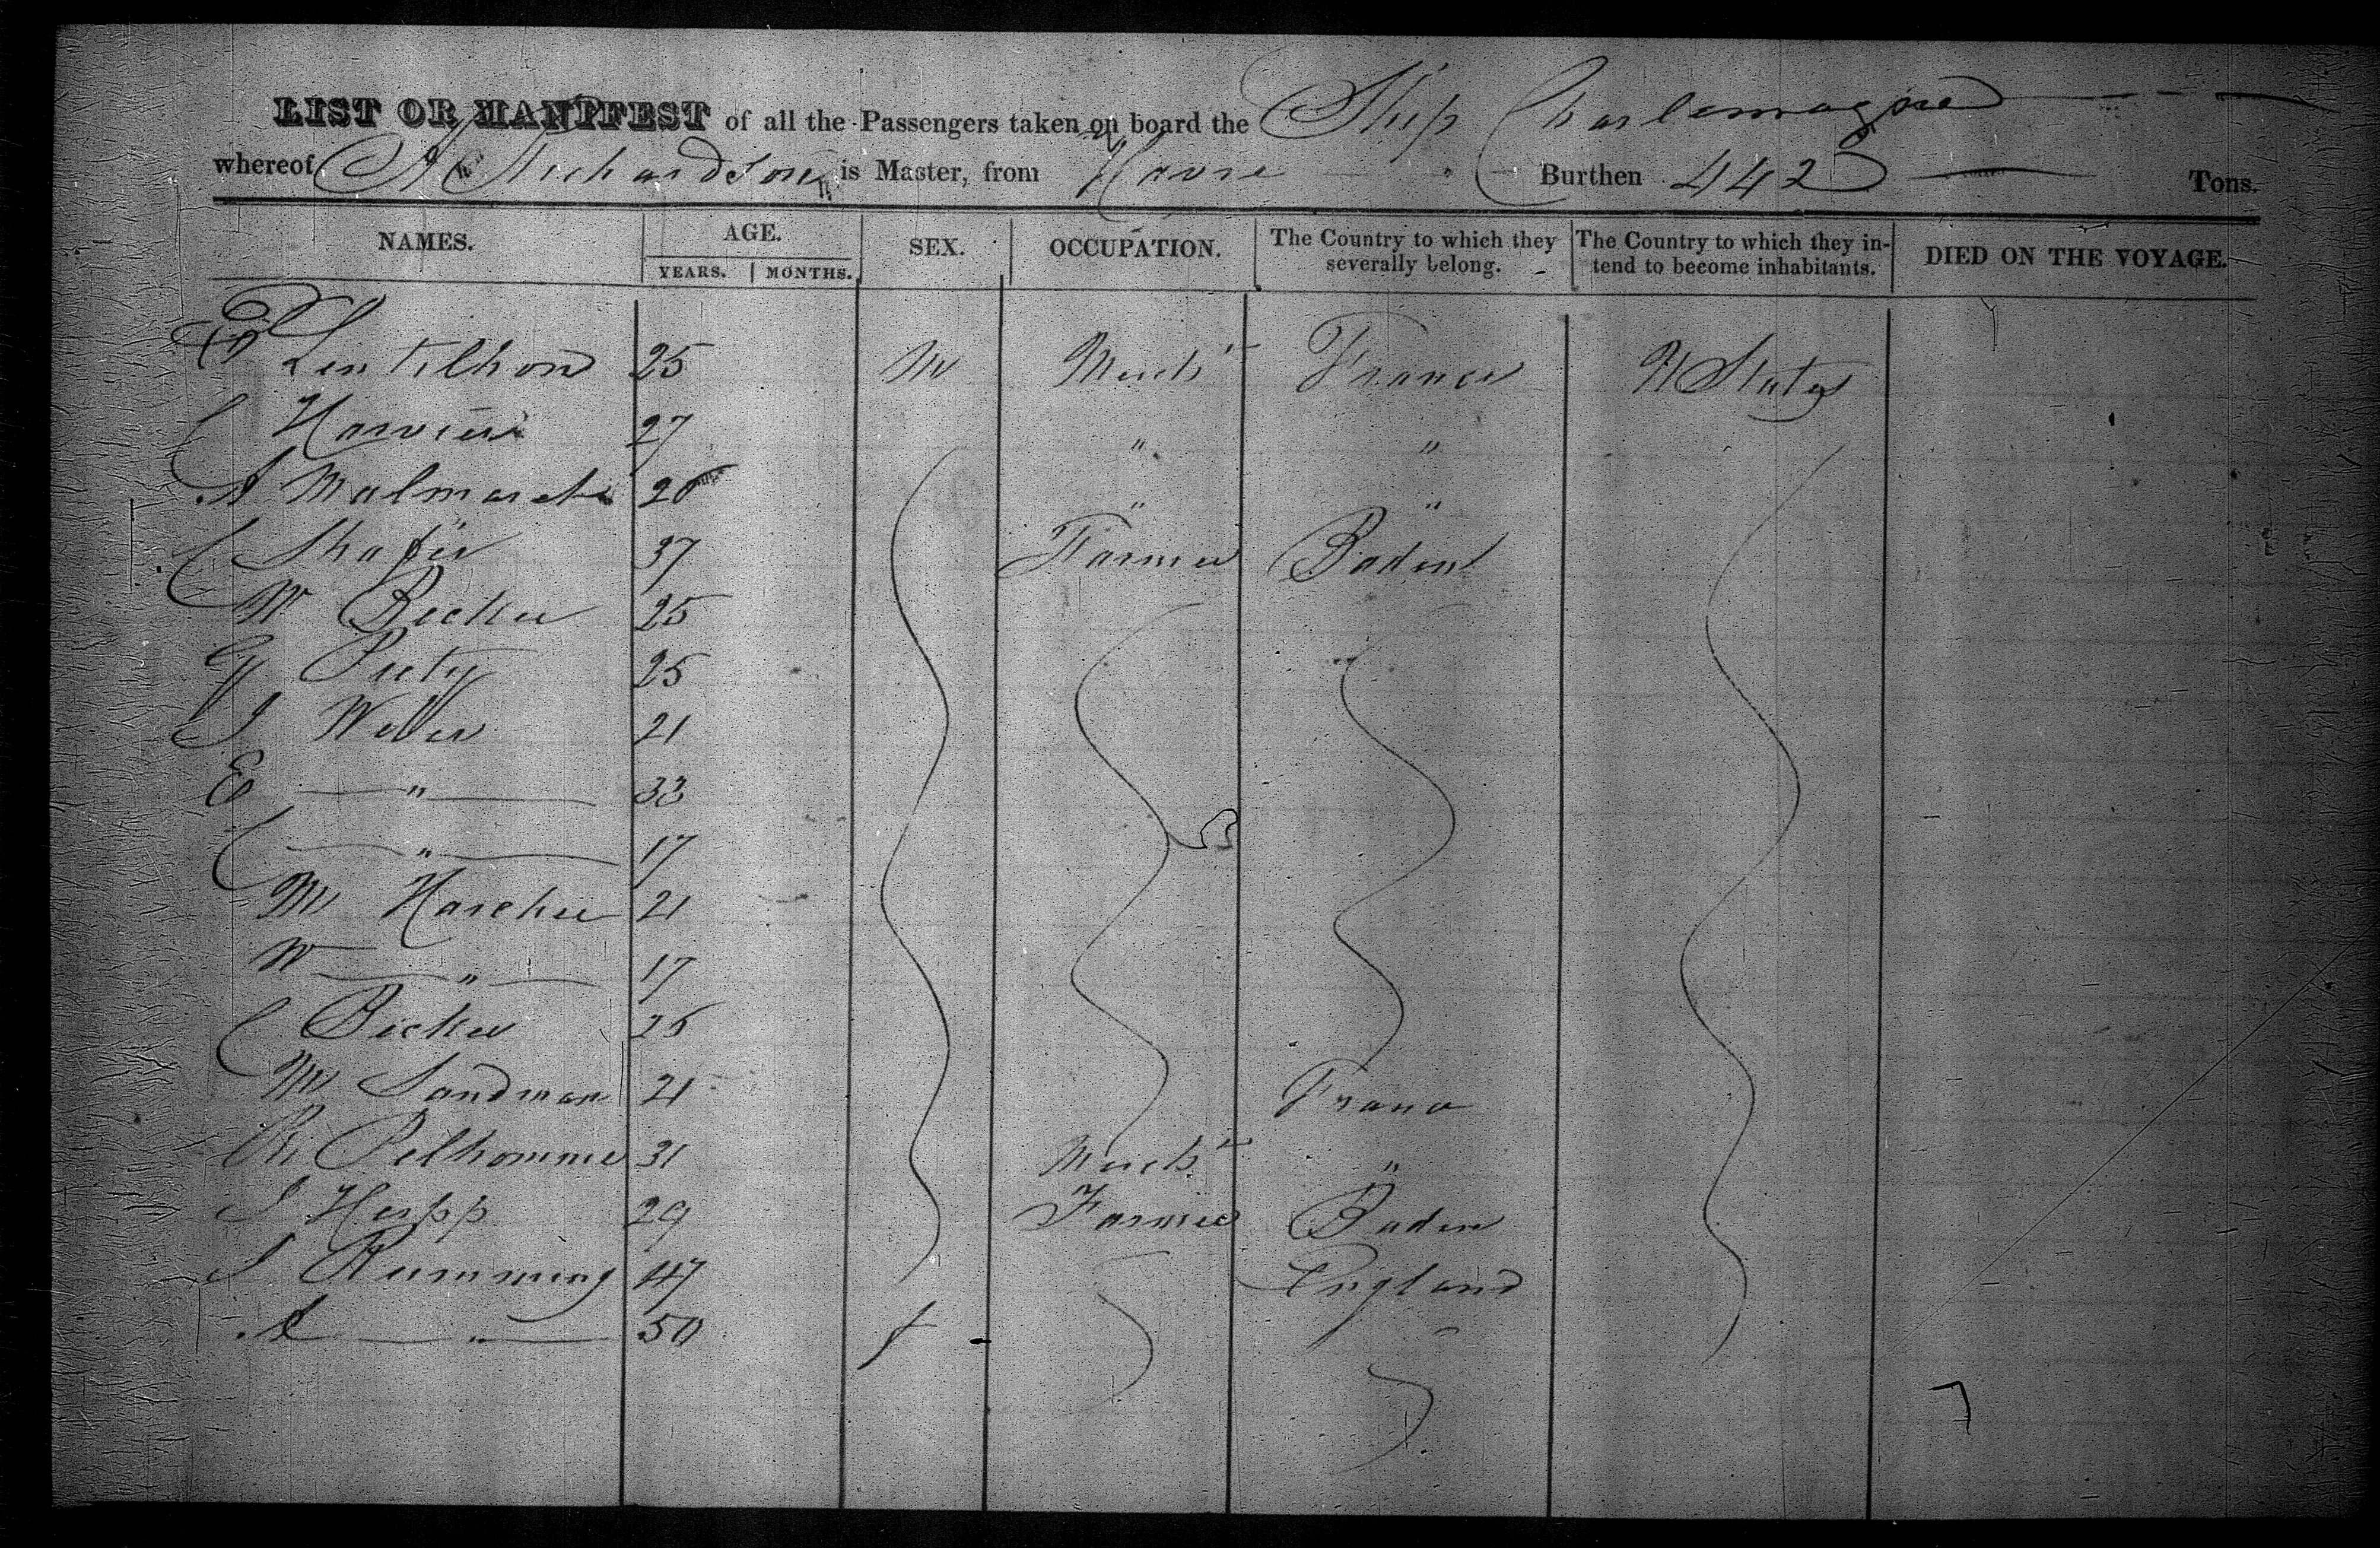 LIST OR MANIFEST of all the Passengers taken on board the Ship Charlemagne
whereof A Richardson is Master, from Havre Burthen 442 Tons.
NAMES. AGE. SEX. OCCUPATION. The Country to which they severally belong. The Country to which they intend to become inhabitants. DIED ON THE VOYAGE.
YEARS. MONTHS.
Lentilhon 25 M Mercht France U States
C 27 " "
A 26 " "
C Shafer 37 Farmer Baden
W Becker 25
G 25
J Weber 21
E " 33
C " 17
M Harcher 21
W " 17
C Becker 25
M Sandman 21 France
Pelhomme 31 Mercht "
J Hepp 29 Farmer Baden
J Rumming 47 England
A " 50 f